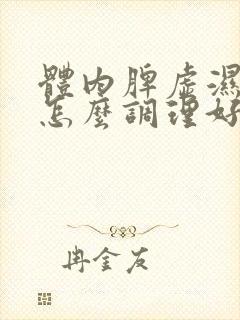 體內脾虛濕
怎麼調理好
冉金友